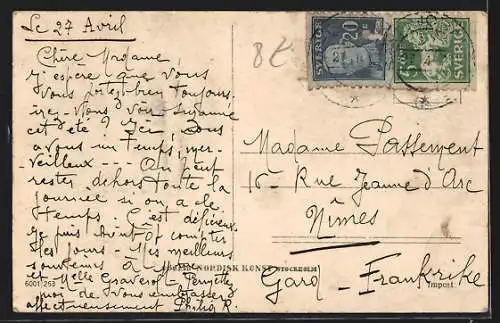 Le 27 Avril
Chère Madame,
J'espère que vous
vous portez bien toujours.
Irez-vous voir Suzanne
cet été ? Ici, nous
avons un temps mer-
veilleux --- On peut
rester dehors toute la
journée si on a le
temps. C'est délicieux
Je puis bientôt compter
les jours - Mes meilleurs
souvenirs à
et Melle Graverol -
moi de vous embrasser
affectueusement
8 E
SVERIGE
20
SVERIGE
5
Madame Passement
16 - Rue Jeanne d'Arc
Nîmes
Gard - Frankrike
NORDISK KONST STOCKHOLM
6001/253
Import